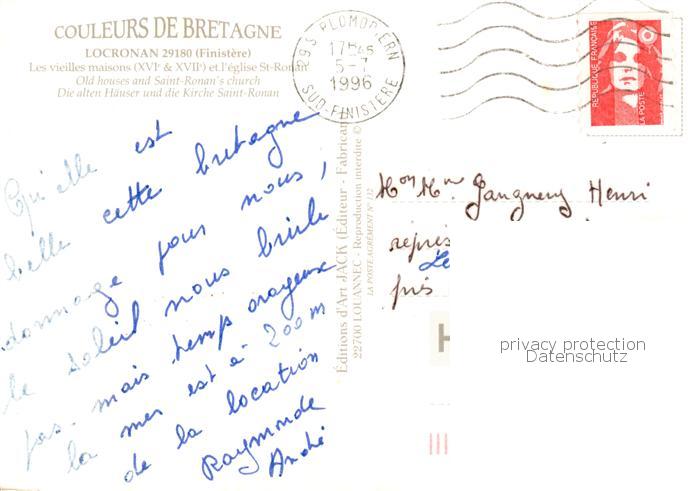 COULEURS DE BRETAGNE
LOCRONAN 29180 (Finistère)
Les vieilles maisons (XVIᵉ & XVIIᵉ) et l'église St-Ronan
Old houses and Saint-Ronan's church
Die alten Häuser und die Kirche Saint-Ronan
293 PLOMODIERN
17H45
5-7
1996
SUD-FINISTÈRE
RÉPUBLIQUE FRANÇAISE
LA POSTE
Qu'elle est
belle cette bretagne
dommage pour nous,
le soleil nous brûle
pas. mais temp orageux
la mer est à 200m
de la location
Raymonde
André
Éditions d'Art JACK (Éditeur - Fabricant)
22700 LOUANNEC - Reproduction interdite ©
LA POSTE AGRÉMENT N° 132
Mon Mme. Gangneux Henri
repres
Le
près
privacy protection
Datenschutz